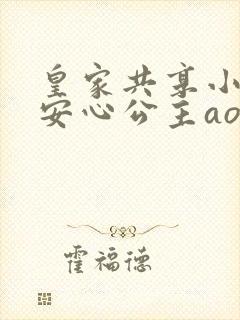 皇家共享小
安心公主ao
霍福德